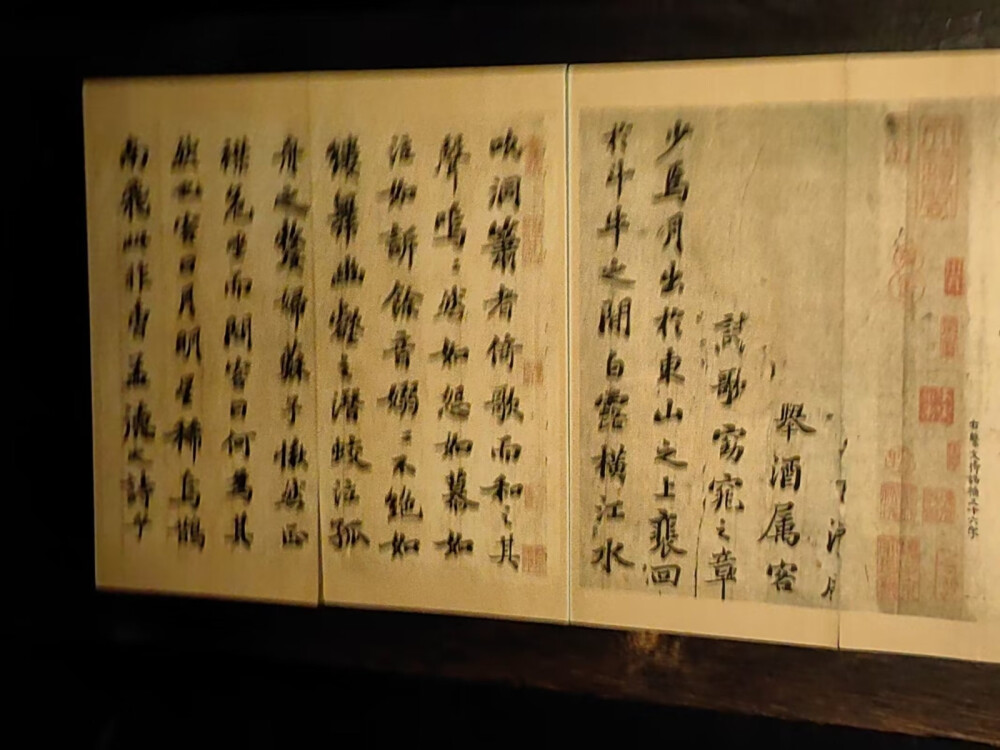 右繫文待詔補三十六字
舉酒属客
詩歌窈窕之章
少焉月出於東山之上裵回
於斗牛之間白露横江水
吹洞簫者倚歌而和之其
聲嗚〻然如怨如慕如
泣如訴餘音嫋〻不絶如
縷舞幽壑之潜蛟泣孤
舟之嫠婦蘇子愀然正
襟危坐而問客曰何為其
然也客曰月明星稀烏鵲
南飛此非曹孟德之詩乎